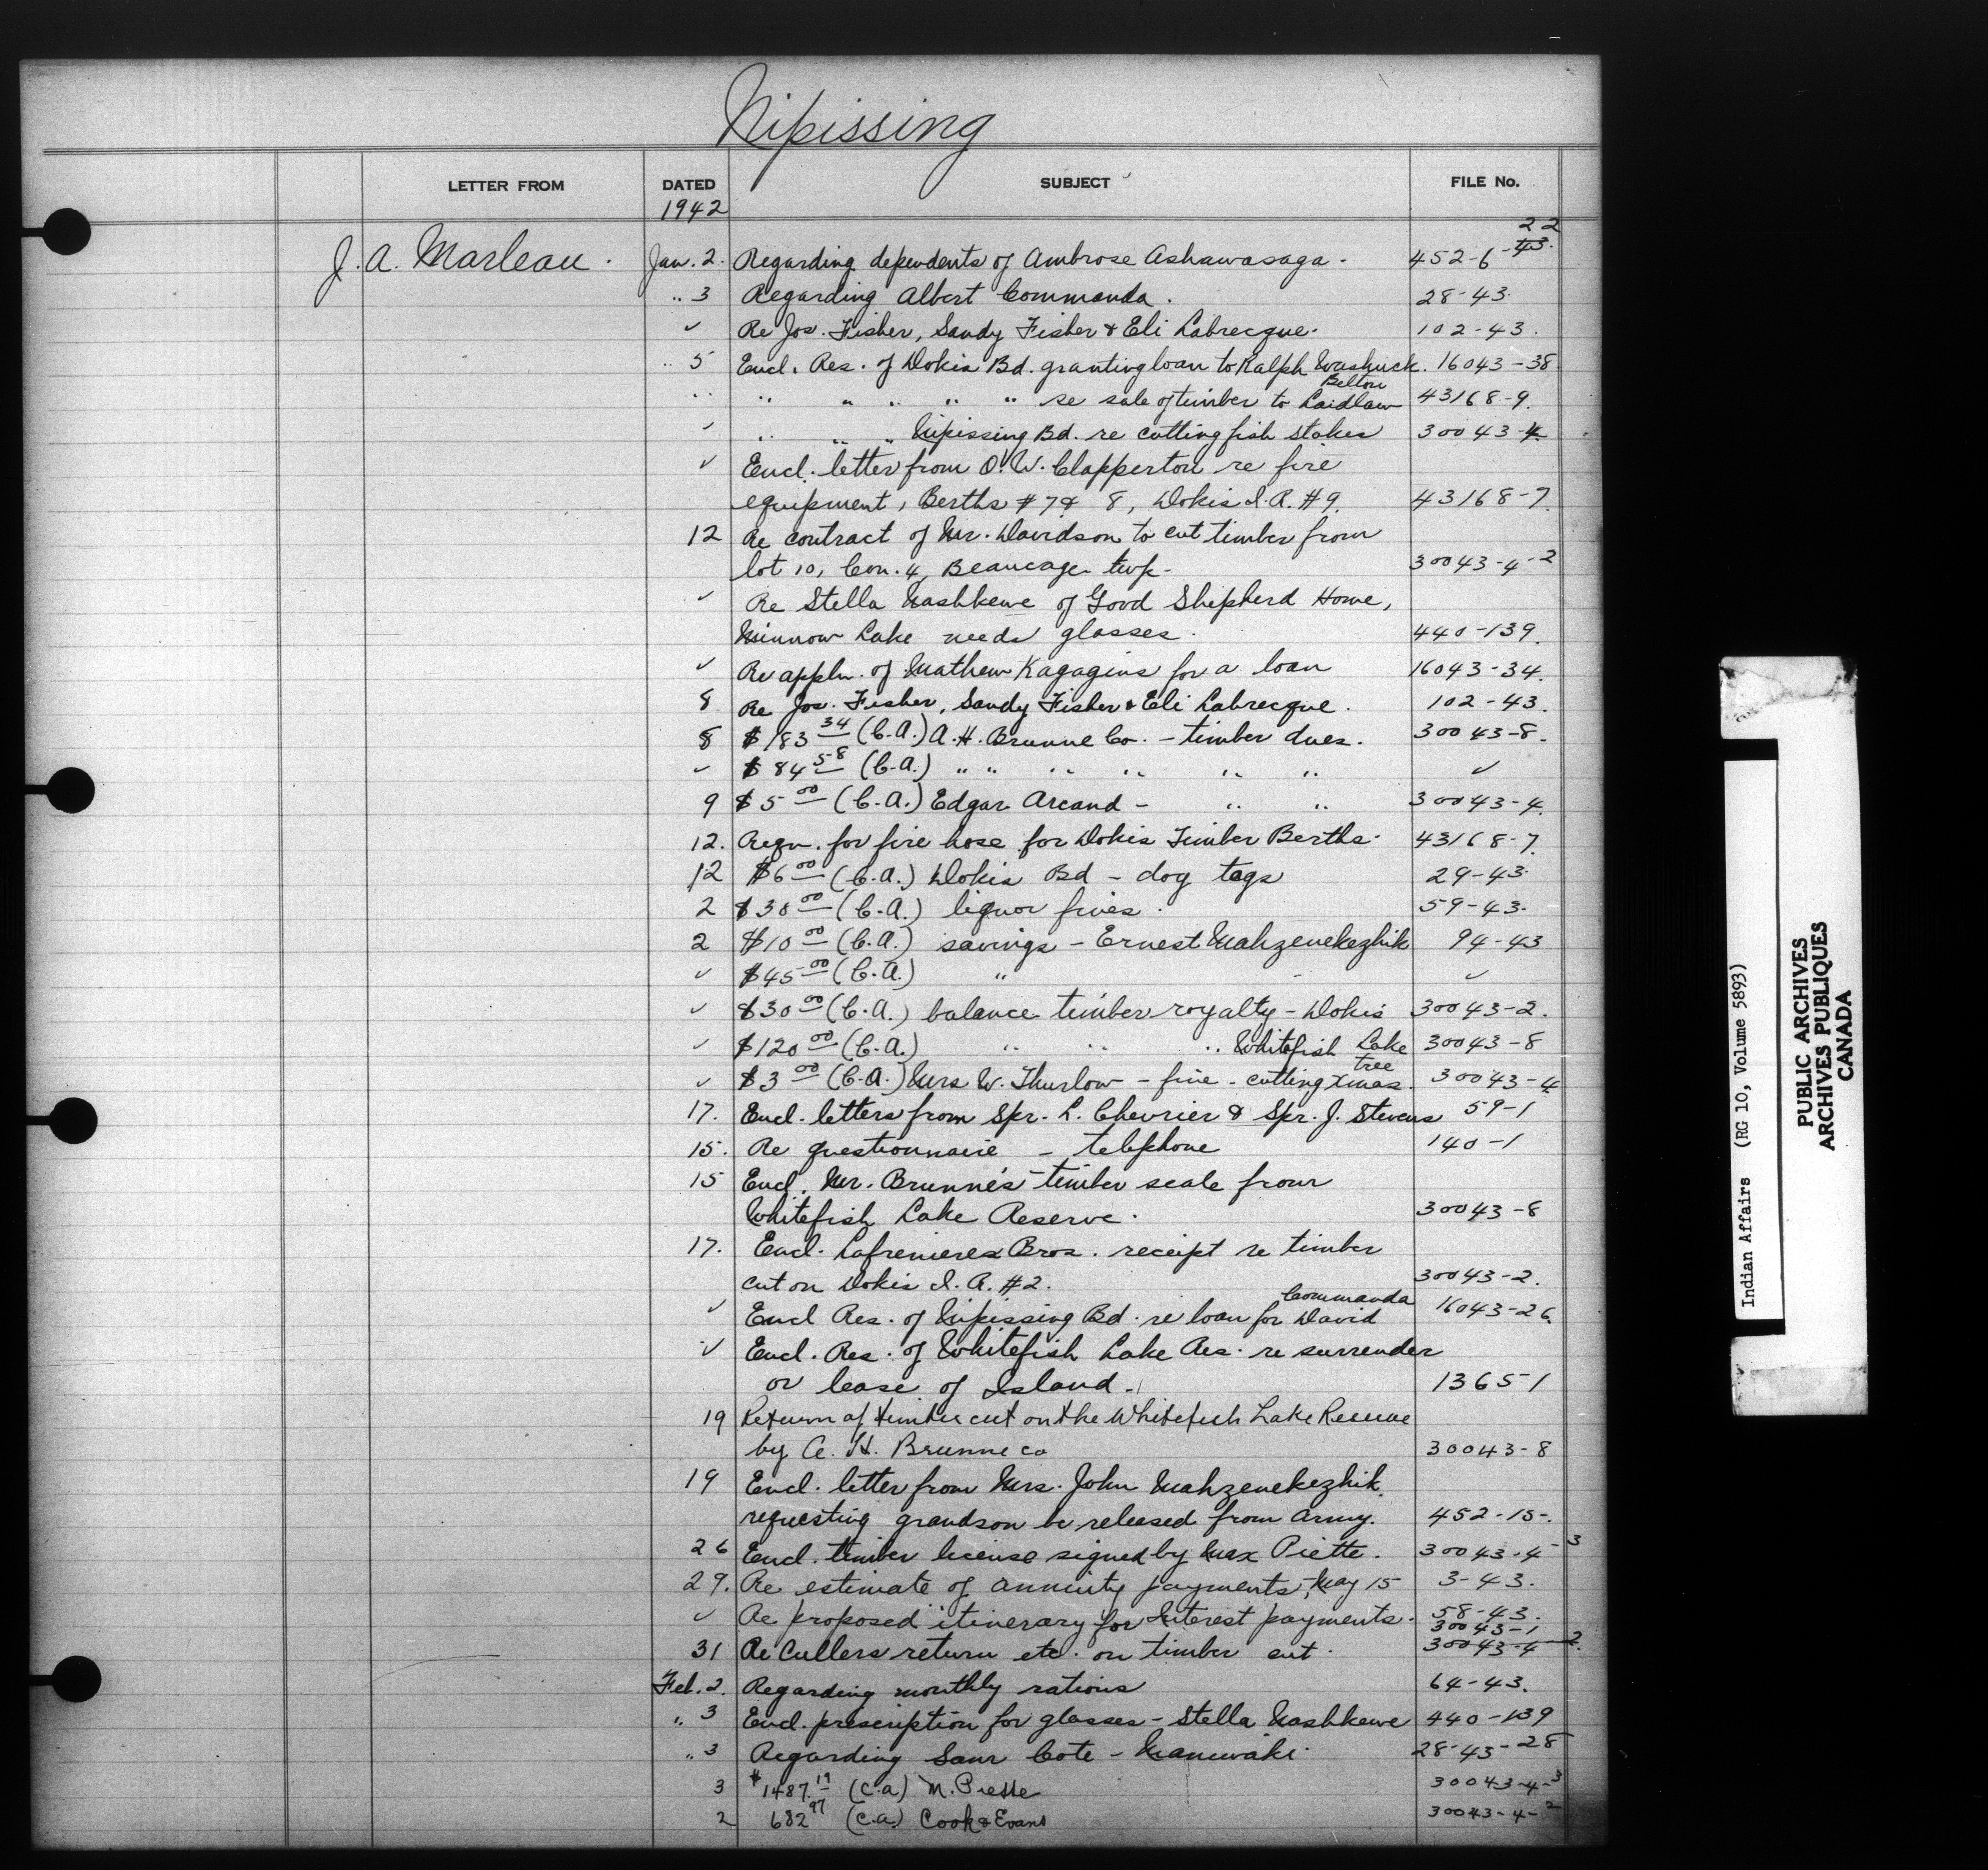 Nipissing
LETTER FROM DATED SUBJECT FILE No.
1942
J. A. Marleau. Jan. 2. Regarding dependents of Ambrose Ashawasaga. 452-6-43. 22
" 3 Regarding Albert Commanda. 28-43.
✓ Re Jos. Fisher, Sandy Fisher & Eli Labrecque. 102-43.
" 5 Encl. Res. of Dokis Bd. granting loan to Ralph Washuck. 16043-38
" " " " " " re sale of timber to Laidlaw Belton 43168-9.
✓ " " " Nipissing Bd. re cutting fish stakes 30043-4.
✓ Encl. letter from O. W. Clapperton re fire
equipment, Berths # 7 & 8, Dokis I.R. #9. 43168-7.
12 Re contract of Mr. Davidson to cut timber from
lot 10, Con. 4, Beaucage twp. 30043-4-2
✓ Re Stella Nashkewe of Good Shepherd Home,
Minnow Lake needs glasses. 440-139.
✓ Re appln. of Mathew Kagagins for a loan 16043-34.
8 Re Jos. Fisher, Sandy Fisher & Eli Labrecque. 102-43.
8 $183 34 (C.A.) A. H. Brunne Co. - timber dues. 30043-8.
✓ $84 58 (C.A.) " " " " " " ✓
9 $5 00 (C.A.) Edgar Arcand - " " 30043-4.
12. Reqn. for fire hose for Dokis Timber Berths. 43168-7.
12 $6 00 (C.A.) Dokis Bd - dog tags 29-43.
2 $30 00 (C.A.) liquor fines. 59-43.
2 $10 00 (C.A.) savings - Ernest Mahzenekezhik 94-43
✓ $45 00 (C.A.) " - ✓
✓ $30 00 (C.A.) balance timber royalty - Dokis 30043-2.
✓ $120 00 (C.A.) " " " Whitefish Lake 30043-8
✓ $3 00 (C.A.) Mrs W. Thurlow - fine - cutting Xmas tree. 30043-4
17. Encl. letters from Spr. L. Chevrier & Spr. J. Stevens 59-1
15. Re questionnaire - telephone 140-1
15 Encl. Mr. Brunne's timber scale from
Whitefish Lake Reserve. 30043-8
17. Encl. Lafrenieres Bros. receipt re timber
cut on Dokis I.R. #2. 30043-2.
✓ Encl Res. of Nipissing Bd. re loan for David Commanda 16043-26.
✓ Encl. Res. of Whitefish Lake Res. re surrender
or lease of Island. 1365-1
19 Return of timber cut on the Whitefish Lake Reserve
by A. H. Brunne co 30043-8
19 Encl. letter from Mrs. John Mahzenekezhik
requesting grandson be released from Army. 452-15-.
26 Encl. timber license signed by Max Piette. 30043-4-3
29. Re estimate of annuity payments, May 15 3-43.
✓ Re proposed itinerary for Interest payments. 58-43.
30043-1
31 Re Cullers return etc. on timber cut. 30043-4-2.
Feb. 2. Regarding monthly rations 64-43.
" 3 Encl. prescription for glasses - Stella Nashkewe 440-139
" 3 Regarding Sam Cote - Maniwaki. 28-43-28
3 $1487.19 (C.a) M. Piette 30043-4-3
2 682 97 (C.a.) Cook & Evans 30043-4-2
Indian Affairs (RG 10, Volume 5893)
PUBLIC ARCHIVES
ARCHIVES PUBLIQUES
CANADA